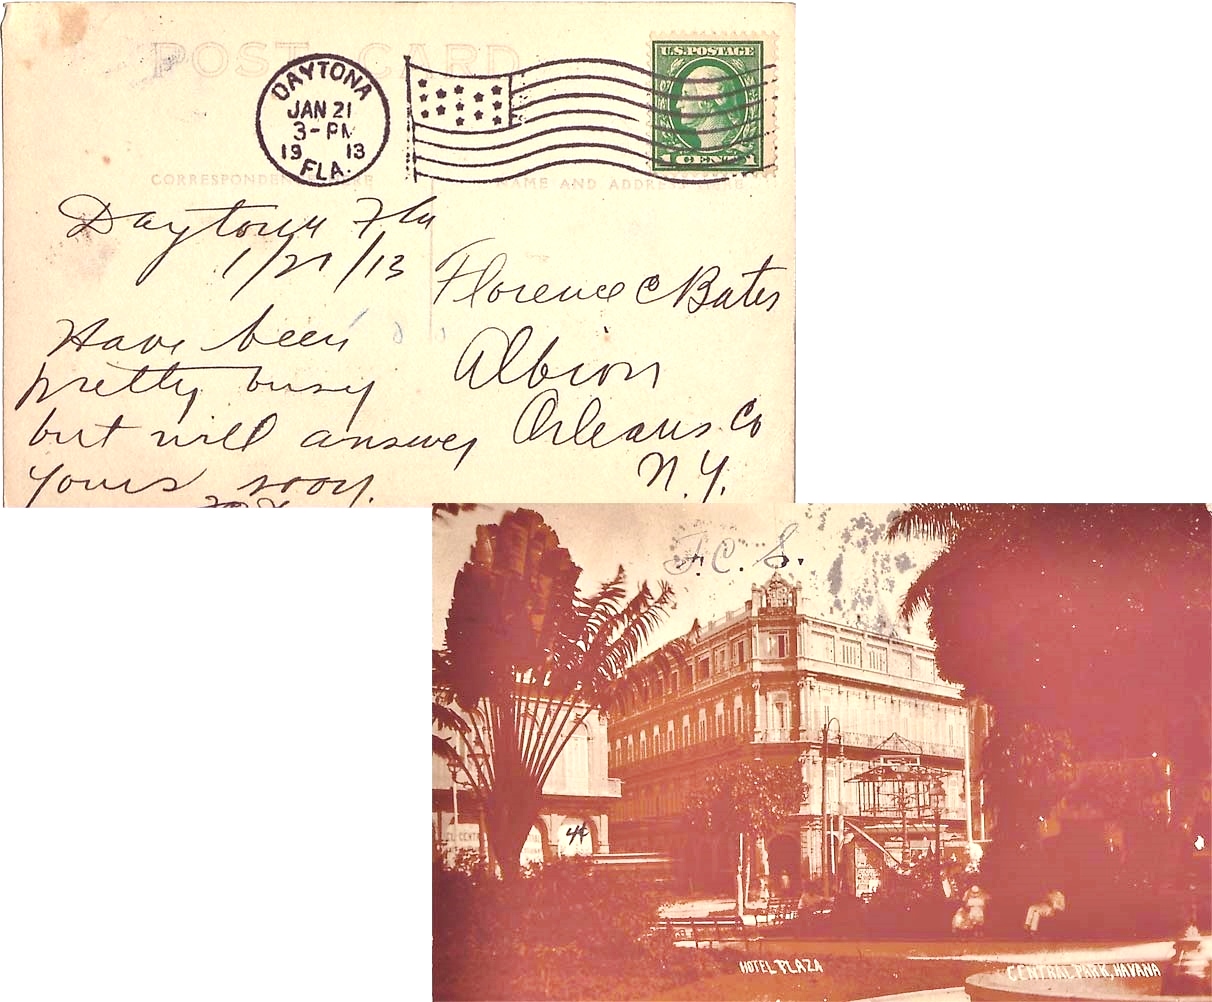 POST CARD
DAYTONA
JAN 21
3-PM
1913
FLA.
U.S. POSTAGE
1 CENT
CORRESPONDENCE HERE
NAME AND ADDRESS HERE
Daytona Fla
1/21/13
Have been
pretty busy
but will answer
yours soon.
Florence C Bates
Albion
Orleans Co
N.Y.
F.C.S.
HOTEL PLAZA
CENTRAL PARK, HAVANA